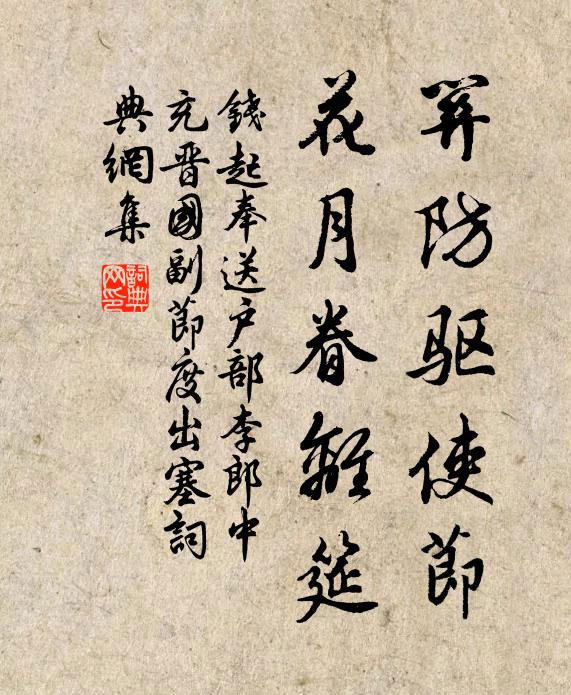 关防驱使節
花月眷離筵
錢起奉送户部李郎中
充晋國副節度出塞詞
典網集
詞典
网印